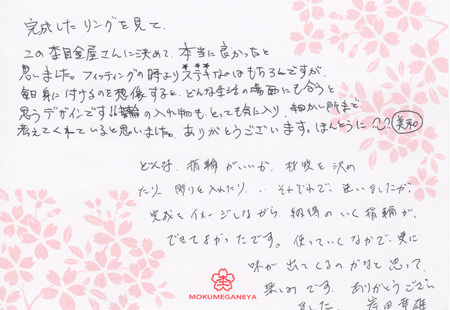 完成したリングを見て、
この杢目金屋さんに決めて、本当に良かったと
思いました。フィッティングの時よりステキなのはもちろんですが、
毎日身に付けるのを想像すると、どんな生活の場面にも合うと
思うデザインです!!指輪の入れ物も、とっても気に入り、細かい所まで
考えてくれていると思いました。ありがとうございます。ほんとうに 美和
どんな、指輪がいいか、材質を決め
たり、彫りを入れたり、‥それぞれで、迷いましたが、
完成をイメージしながら、納得のいく指輪が、
できてよかったです。使っていくなかで、更に
味が出てくるのかなと思って、
楽しみです。ありがとうござい
ました。岸田 幸雄
MOKUMEGANEYA